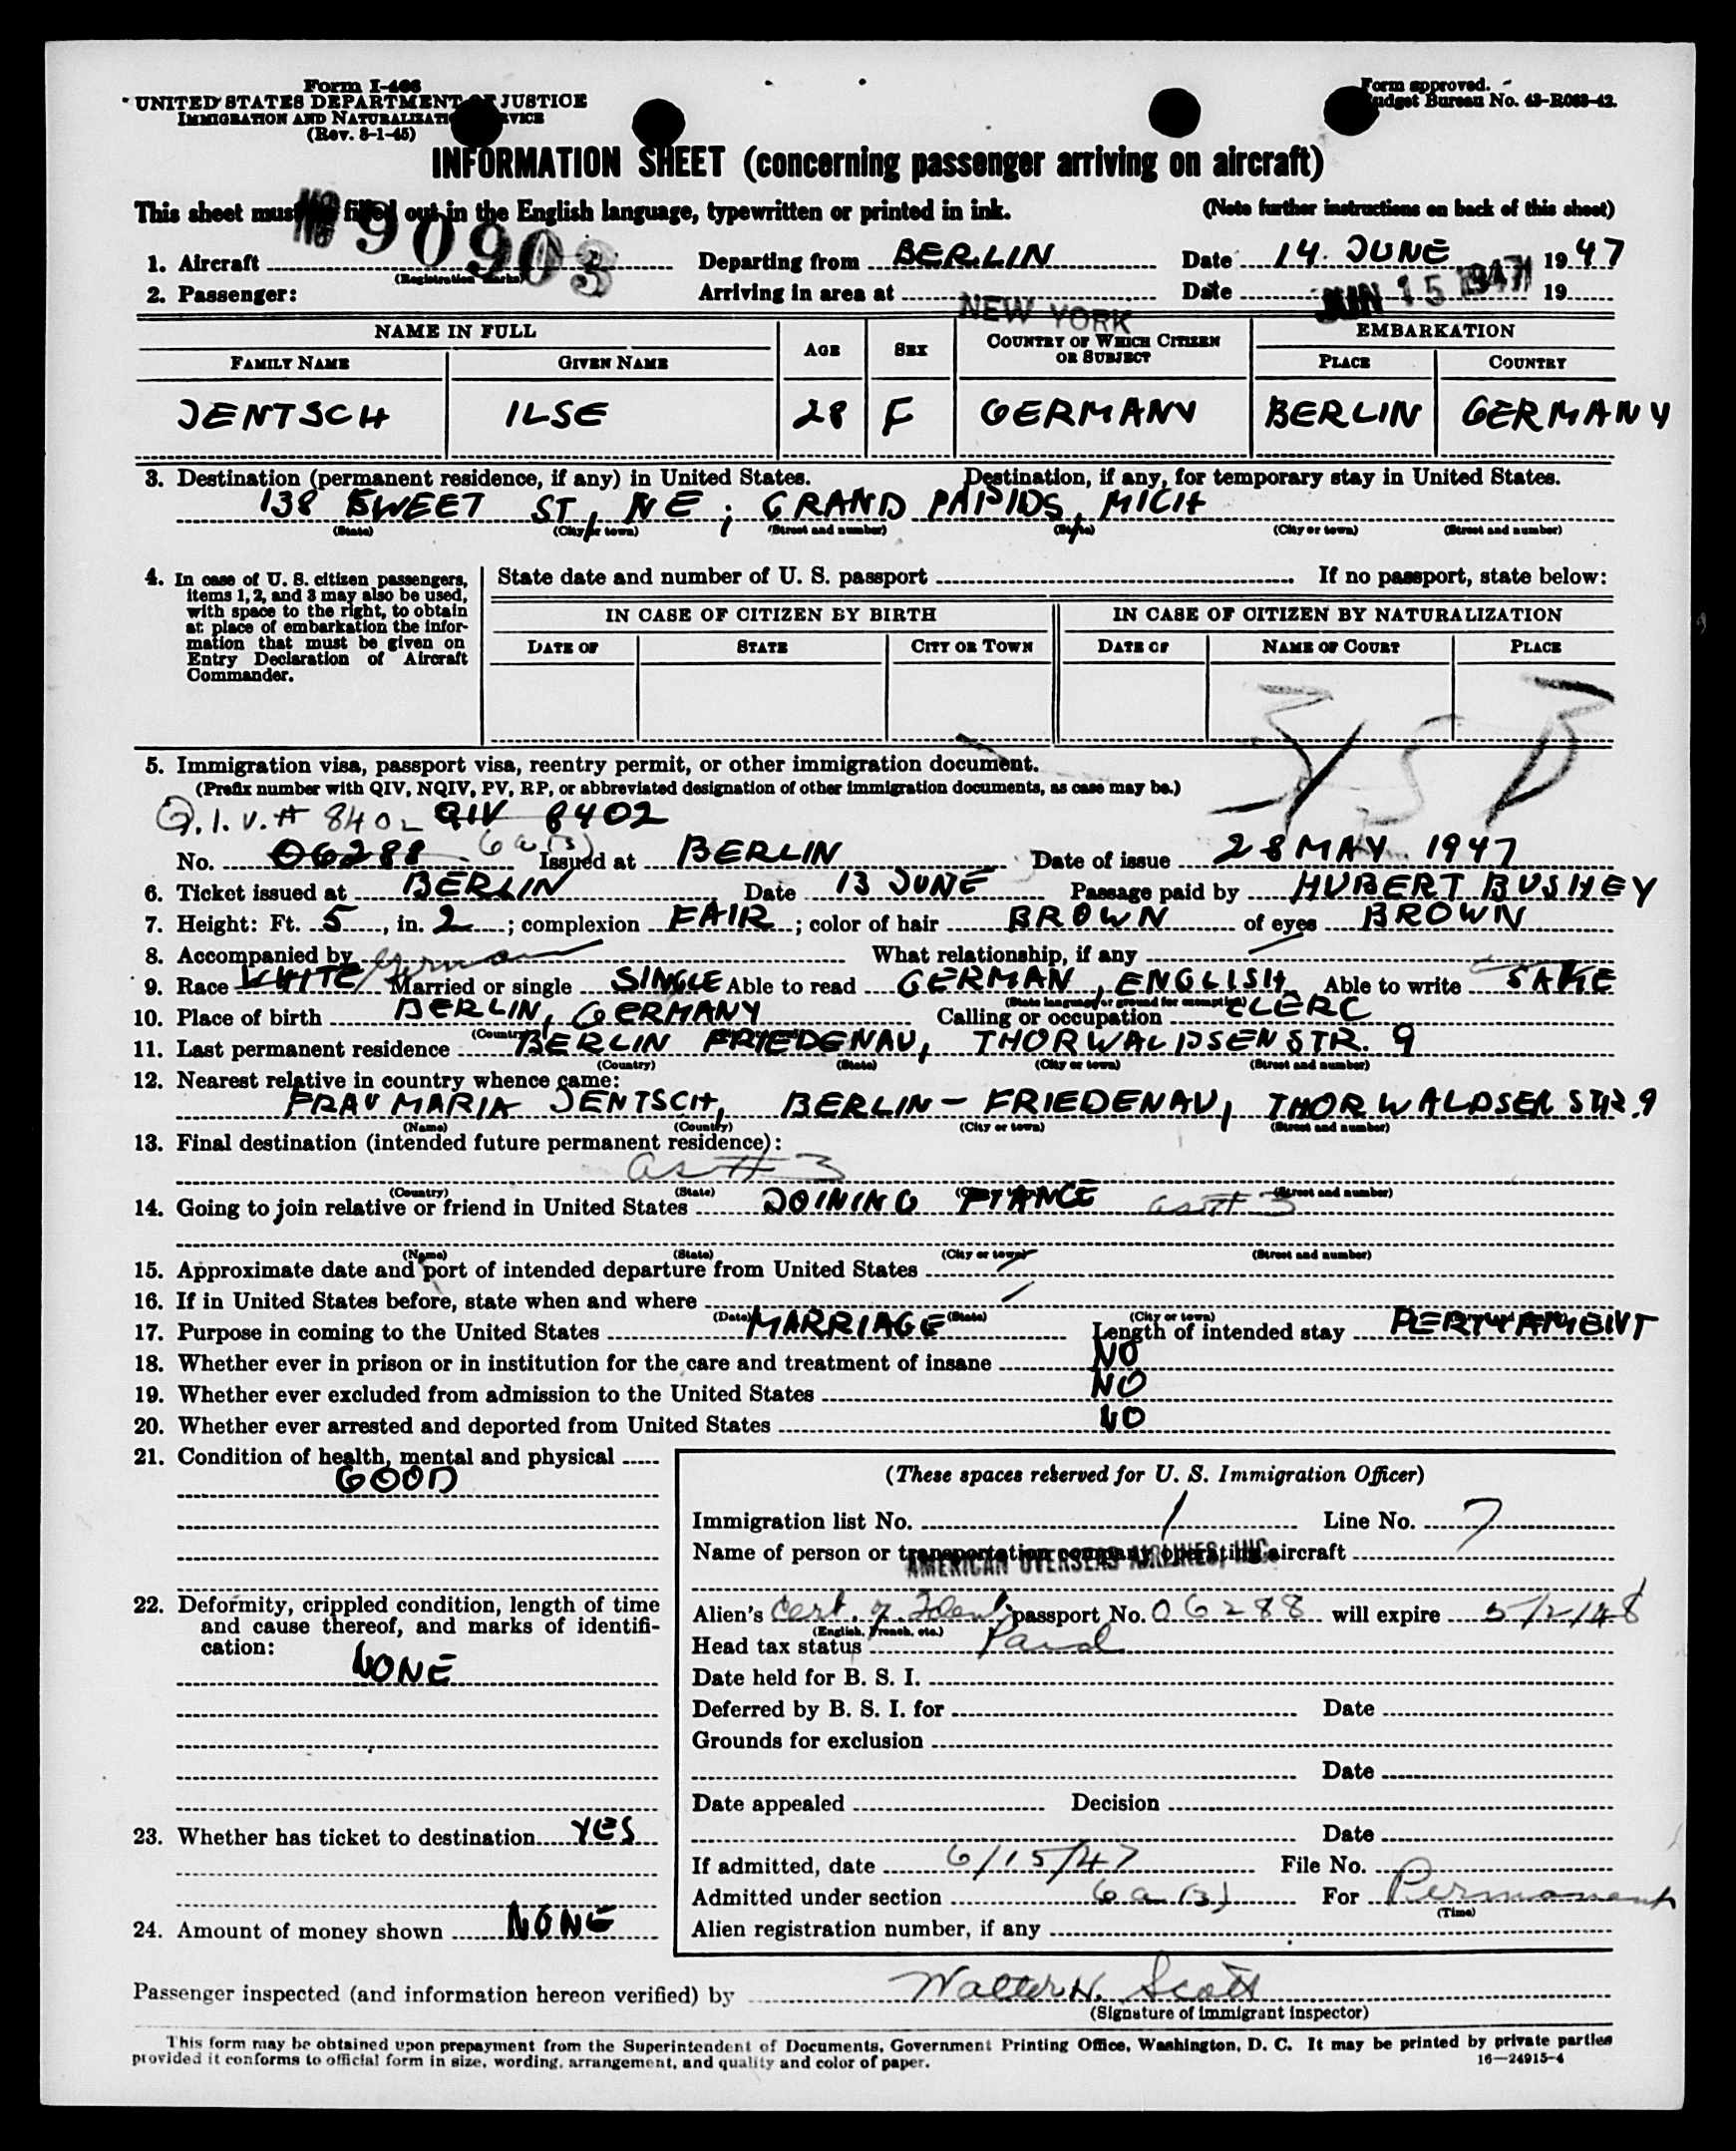 Form I-466
UNITED STATES DEPARTMENT OF JUSTICE
IMMIGRATION AND NATURALIZATION SERVICE
(Rev. 8-1-45)
Form approved.
Budget Bureau No. 43-R063-42.
INFORMATION SHEET (concerning passenger arriving on aircraft)
This sheet must be filled out in the English language, typewritten or printed in ink. (Note further instructions on back of this sheet)
90903
1. Aircraft Departing from BERLIN Date 14. JUNE 1947
(Registration marks)
2. Passenger: Arriving in area at NEW YORK Date JUN 15 1947 19
NAME IN FULL AGE SEX COUNTRY OF WHICH CITIZEN OR SUBJECT EMBARKATION
FAMILY NAME GIVEN NAME PLACE COUNTRY
JENTSCH ILSE 28 F GERMANY BERLIN GERMANY
3. Destination (permanent residence, if any) in United States. Destination, if any, for temporary stay in United States.
138 SWEET ST, NE; GRAND RAPIDS, MICH
(State) (City or town) (Street and number) (State) (City or town) (Street and number)
4. In case of U. S. citizen passengers, items 1, 2, and 3 may also be used, with space to the right, to obtain at place of embarkation the information that must be given on Entry Declaration of Aircraft Commander.
State date and number of U. S. passport If no passport, state below:
IN CASE OF CITIZEN BY BIRTH IN CASE OF CITIZEN BY NATURALIZATION
DATE OF STATE CITY OR TOWN DATE OF NAME OF COURT PLACE
5. Immigration visa, passport visa, reentry permit, or other immigration document.
(Prefix number with QIV, NQIV, PV, RP, or abbreviated designation of other immigration documents, as case may be.)
Q.I.V.# 8402 QIV 8402
No. 06288 6a(3) Issued at BERLIN Date of issue 28 MAY 1947
6. Ticket issued at BERLIN Date 13 JUNE Passage paid by HUBERT BUSHEY
7. Height: Ft. 5, in. 2; complexion FAIR; color of hair BROWN of eyes BROWN
8. Accompanied by What relationship, if any
9. Race WHITE/German Married or single SINGLE Able to read GERMAN, ENGLISH Able to write SAME
(State language or ground for exemption)
10. Place of birth BERLIN, GERMANY Calling or occupation CLERC
11. Last permanent residence BERLIN FRIEDENAU, THORWALDSENSTR. 9
(Country) (State) (City or town) (Street and number)
12. Nearest relative in country whence came:
FRAU MARIA JENTSCH, BERLIN - FRIEDENAU, THORWALDSEN STR. 9
(Name) (Country) (City or town) (Street and number)
13. Final destination (intended future permanent residence):
as # 3
(Country) (State) (Street and number)
14. Going to join relative or friend in United States JOINING FIANCE as # 3
(Name) (State) (City or town) (Street and number)
15. Approximate date and port of intended departure from United States
16. If in United States before, state when and where
(Date) (State) (City or town)
17. Purpose in coming to the United States MARRIAGE Length of intended stay PERMAMENT
18. Whether ever in prison or in institution for the care and treatment of insane NO
19. Whether ever excluded from admission to the United States NO
20. Whether ever arrested and deported from United States NO
21. Condition of health, mental and physical
GOOD
22. Deformity, crippled condition, length of time and cause thereof, and marks of identification:
NONE
23. Whether has ticket to destination YES
24. Amount of money shown NONE
(These spaces reserved for U. S. Immigration Officer)
Immigration list No. 1 Line No. 7
Name of person or transportation company operating aircraft
AMERICAN OVERSEAS AIRLINES, INC.
Alien's Cert. of Ident. passport No. 06288 will expire 5/2/48
(English, French, etc.)
Head tax status Paid
Date held for B. S. I.
Deferred by B. S. I. for Date
Grounds for exclusion
Date
Date appealed Decision
Date
If admitted, date 6/15/47 File No.
Admitted under section 6a(3) For Permanent
(Time)
Alien registration number, if any
Passenger inspected (and information hereon verified) by Walter H. Scott
(Signature of immigrant inspector)
This form may be obtained upon prepayment from the Superintendent of Documents, Government Printing Office, Washington, D. C. It may be printed by private parties
provided it conforms to official form in size, wording, arrangement, and quality and color of paper. 16—24915-4